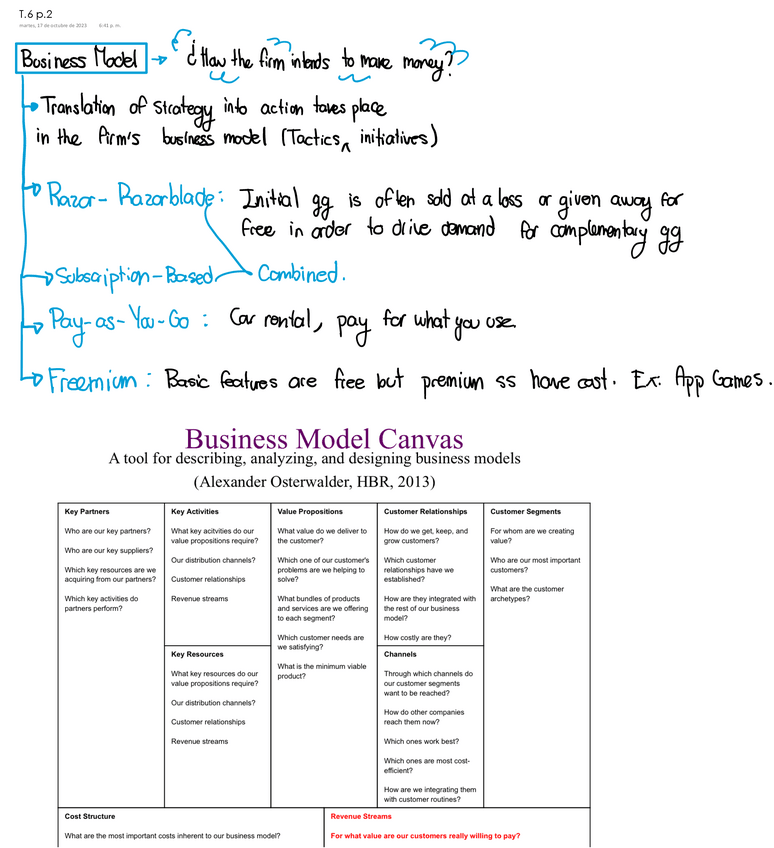 T.6 p.2
martes, 17 de octubre de 2023 6:41 p. m.
Business Model → ¿How the firm intends to make money?
Translation of strategy into action takes place
in the firm's business model (Tactics, initiatives)
Razor-Razorblade: Initial gg is often sold at a loss or given away for
free in order to drive demand for complementary gg
Subscription-Based Combined.
Pay-as-You-Go: Car rental, pay for what you use.
Freemium: Basic features are free but premium ss have cost. Ex: App Games.
Business Model Canvas
A tool for describing, analyzing, and designing business models
(Alexander Osterwalder, HBR, 2013)
Key Partners
Who are our key partners?
Who are our key suppliers?
Which key resources are we
acquiring from our partners?
Which key activities do
partners perform?
Key Activities
What key acitvities do our
value propositions require?
Our distribution channels?
Customer relationships
Revenue streams
Key Resources
What key resources do our
value propositions require?
Our distribution channels?
Customer relationships
Revenue streams
Value Propositions
What value do we deliver to
the customer?
Which one of our customer's
problems are we helping to
solve?
What bundles of products
and services are we offering
to each segment?
Which customer needs are
we satisfying?
What is the minimum viable
product?
Customer Relationships
How do we get, keep, and
grow customers?
Which customer
relationships have we
established?
How are they integrated with
the rest of our business
model?
How costly are they?
Channels
Through which channels do
our customer segments
want to be reached?
How do other companies
reach them now?
Which ones work best?
Which ones are most cost-
efficient?
How are we integrating them
with customer routines?
Customer Segments
For whom are we creating
value?
Who are our most important
customers?
What are the customer
archetypes?
Cost Structure
What are the most important costs inherent to our business model?
Revenue Streams
For what value are our customers really willing to pay?